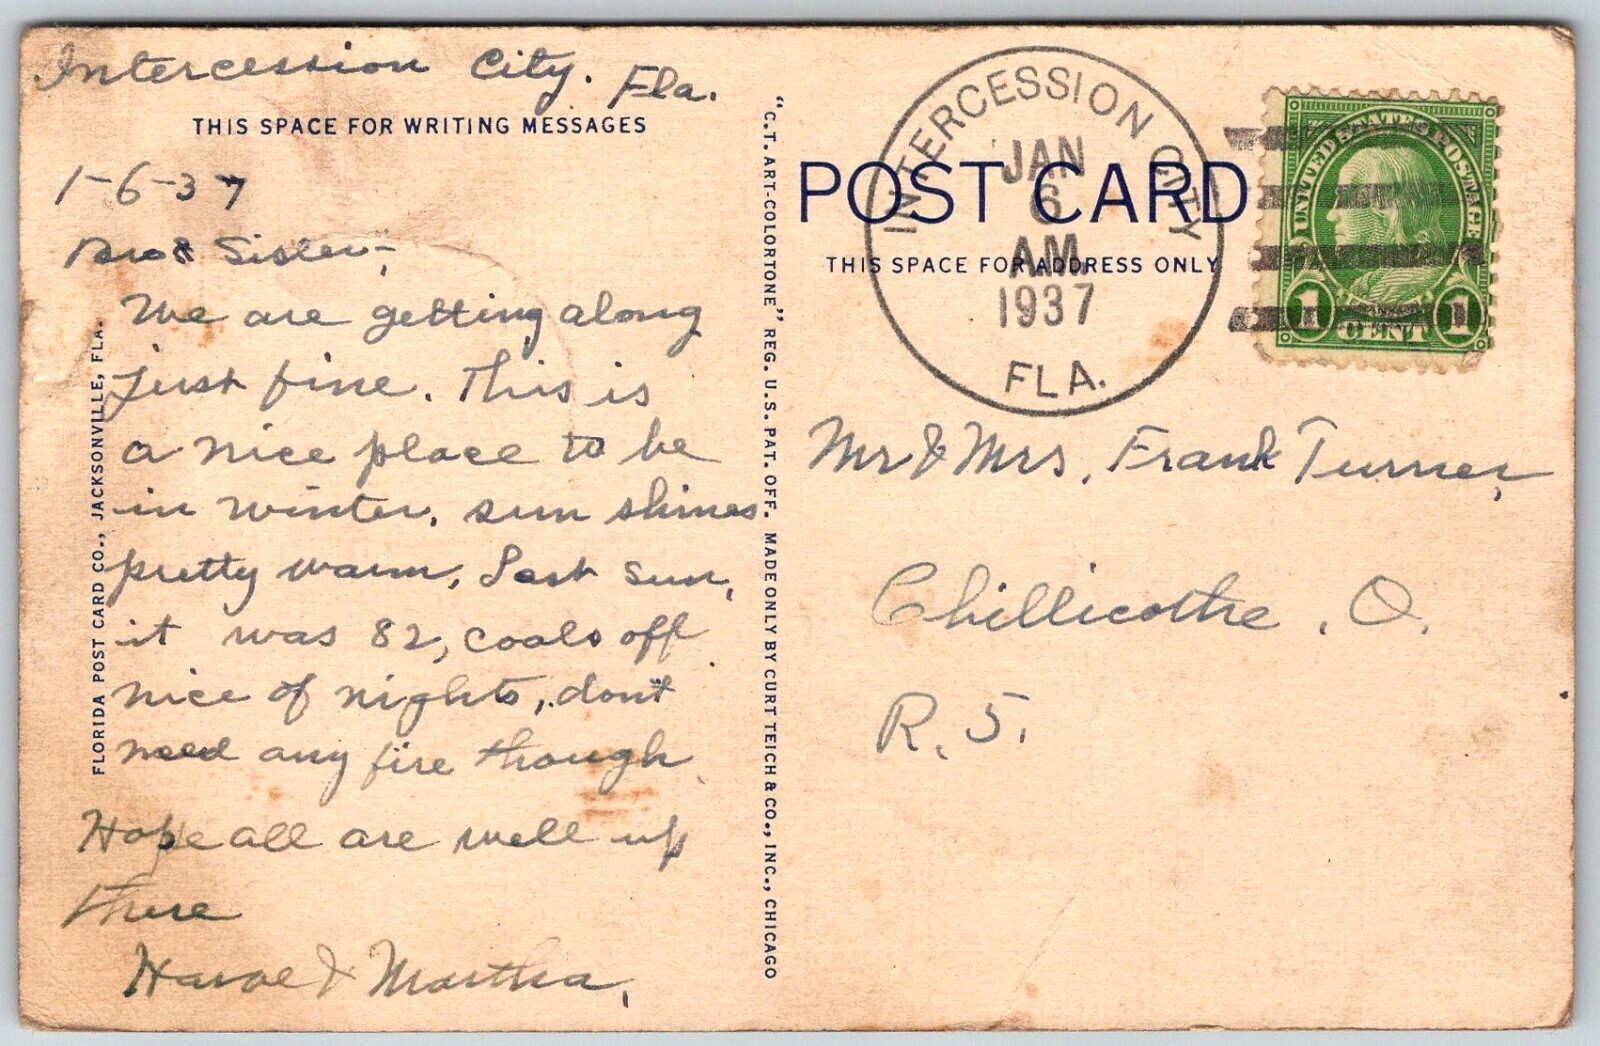 Intercession City. Fla.
THIS SPACE FOR WRITING MESSAGES
1-6-37
Bro & Sister;
We are getting along
just fine. This is
a nice place to be
in winter. sun shines
pretty warm, Last Sun,
it was 82, cools off
nice of nights, dont
need any fire though.
Hope all are well up
there
& Martha,
FLORIDA POST CARD CO., JACKSONVILLE, FLA.
"C.T. ART-COLORTONE" REG. U.S. PAT. OFF. MADE ONLY BY CURT TEICH & CO., INC., CHICAGO
POST CARD
THIS SPACE FOR ADDRESS ONLY
INTERCESSION CITY
JAN
6
AM
1937
FLA.
UNITED STATES POSTAGE
1 CENT 1
Mr & Mrs, Frank Turner,
Chillicothe, O.
R. 5.